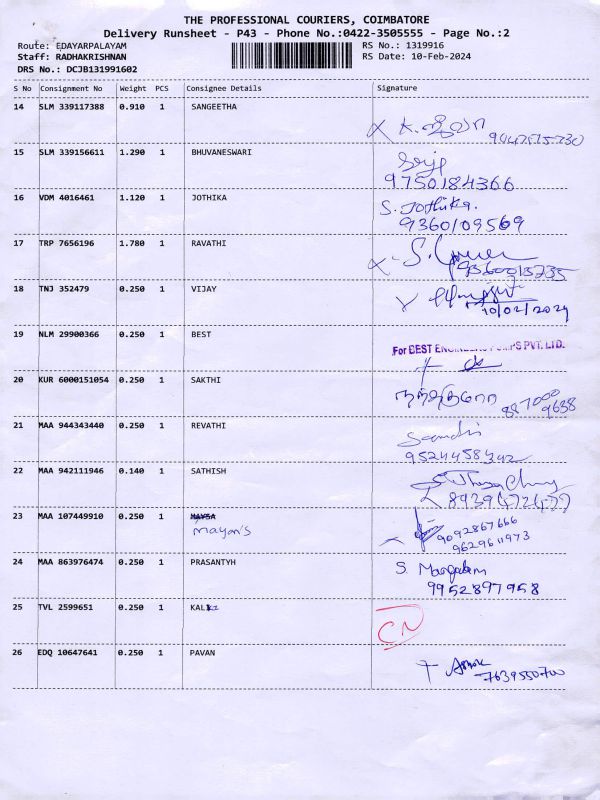 THE PROFESSIONAL COURIERS, COIMBATORE
Delivery Runsheet - P43 - Phone No.:0422-3505555 - Page No.:2
Route: EDAYARPALAYAM RS No.: 1319916
Staff: RADHAKRISHNAN RS Date: 10-Feb-2024
DRS No.: DCJB131991602
S No Consignment No Weight PCS Consignee Details Signature
14 SLM 339117388 0.910 1 SANGEETHA
15 SLM 339156611 1.290 1 BHUVANESWARI
9750184366
16 VDM 4016461 1.120 1 JOTHIKA S. Jothika.
9360109569
17 TRP 7656196 1.780 1 RAVATHI
18 TNJ 352479 0.250 1 VIJAY
10/02/2024
19 NLM 29900366 0.250 1 BEST
For BEST ENGINEERS PUMPS PVT. LTD.
20 KUR 6000151054 0.250 1 SAKTHI
887000
9638
21 MAA 944343440 0.250 1 REVATHI
9524458342
22 MAA 942111946 0.140 1 SATHISH
23 MAA 107449910 0.250 1
mayon's
9092867666
9629611973
24 MAA 863976474 0.250 1 PRASANTYH S. Mangalam
9952897958
25 TVL 2599651 0.250 1 KALKI
CN
26 EDQ 10647641 0.250 1 PAVAN
Ashok
7639550700